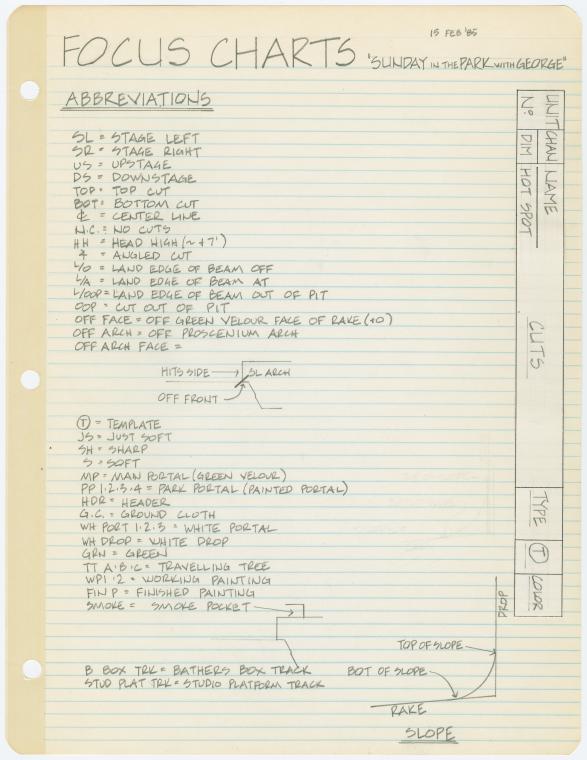 15 FEB '85
FOCUS CHARTS "SUNDAY IN THE PARK WITH GEORGE"
ABBREVIATIONS
SL = STAGE LEFT
SR = STAGE RIGHT
US = UPSTAGE
DS = DOWNSTAGE
TOP = TOP CUT
BOT = BOTTOM CUT
℄ = CENTER LINE
N.C. = NO CUTS
HH = HEAD HIGH (~ +7')
∡ = ANGLED CUT
L/O = LAND EDGE OF BEAM OFF
L/A = LAND EDGE OF BEAM AT
L/OOP = LAND EDGE OF BEAM OUT OF PIT
OOP = CUT OUT OF PIT
OFF FACE = OFF GREEN VELOUR FACE OF RAKE (+0)
OFF ARCH = OFF PROSCENIUM ARCH
OFF ARCH FACE =
HITS SIDE
SL ARCH
OFF FRONT
Ⓣ = TEMPLATE
JS = JUST SOFT
SH = SHARP
S = SOFT
MP = MAN PORTAL (GREEN VELOUR)
PP 1·2·3·4 = PARK PORTAL (PAINTED PORTAL)
HDR = HEADER
G.C. = GROUND CLOTH
WH PORT 1·2·3 = WHITE PORTAL
WH DROP = WHITE DROP
GRN = GREEN
TT A·B·C = TRAVELLING TREE
WP1·2 = WORKING PAINTING
FIN P = FINISHED PAINTING
SMOKE = SMOKE POCKET
B BOX TRK = BATHERS BOX TRACK
STUD PLAT TRK = STUDIO PLATFORM TRACK
DROP
TOP OF SLOPE
BOT OF SLOPE
RAKE
SLOPE
UNIT Nº
CHAN
DIM
NAME
HOT SPOT
CUTS
TYPE
Ⓣ
COLOR